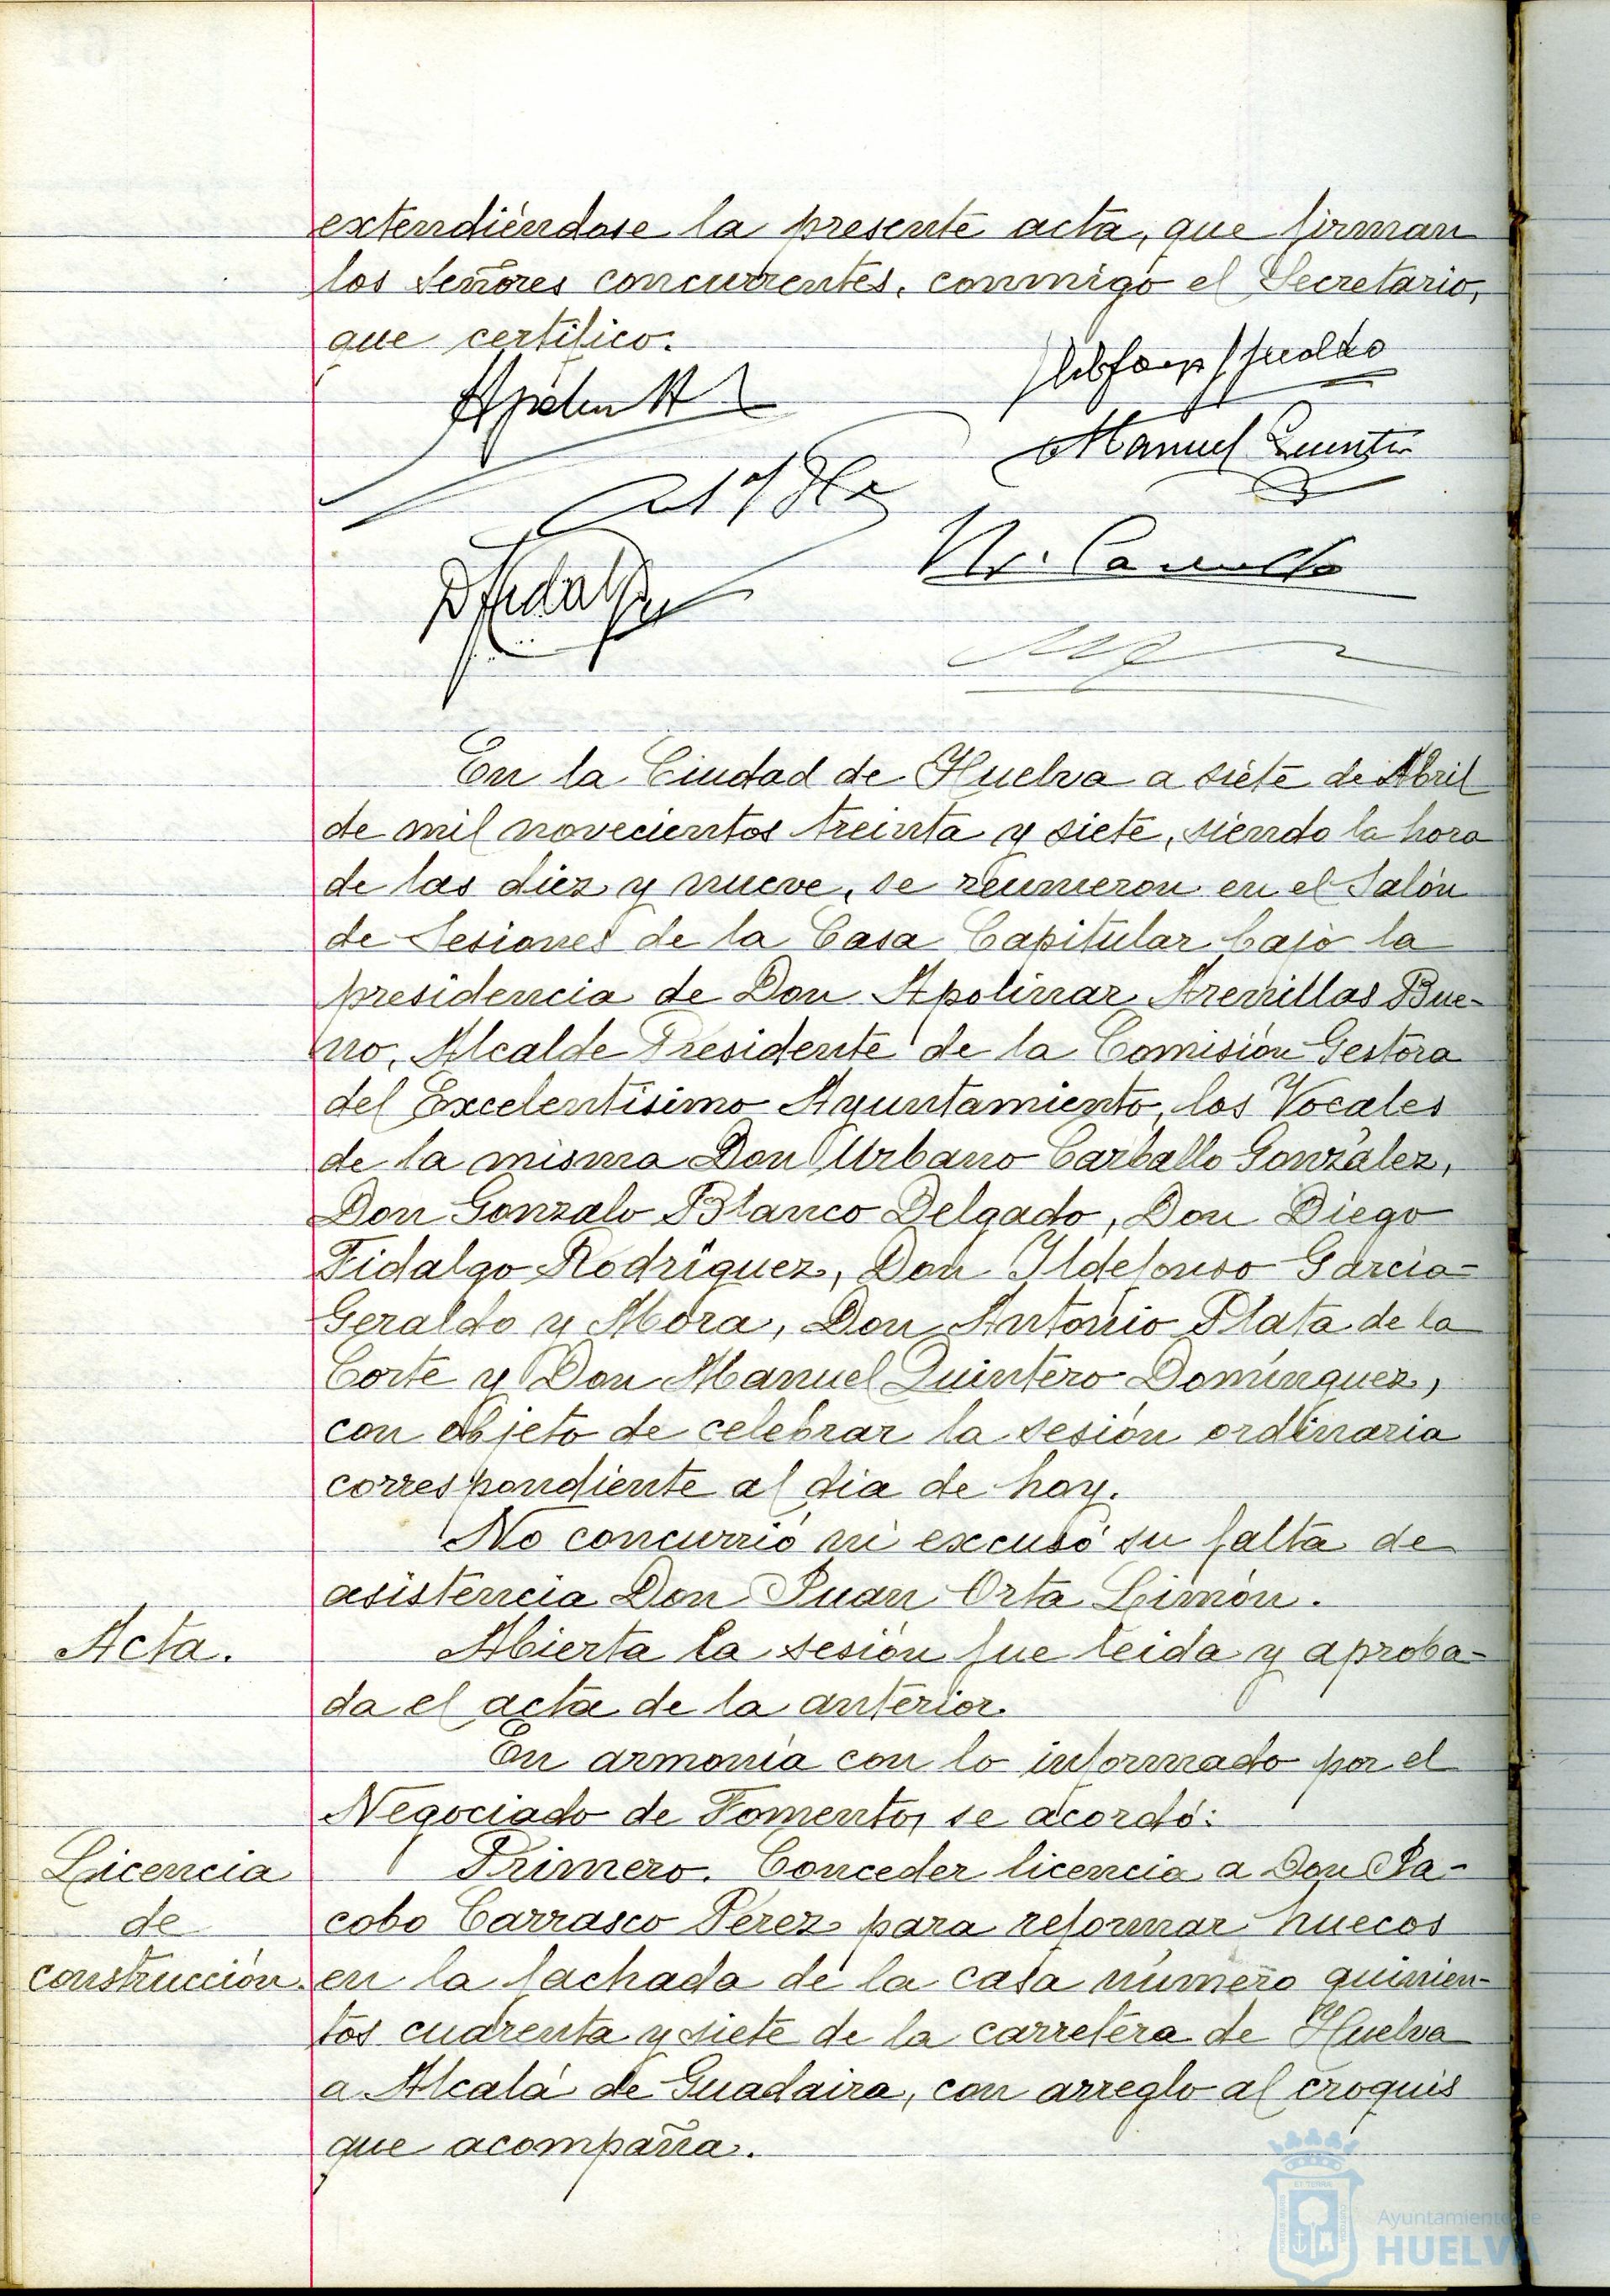 extendiéndose la presente acta, que firman
los Señores concurrentes, conmigo el Secretario,
que certifico.
Manuel Quintero
En la Ciudad de Huelva a siete de Abril
de mil novecientos treinta y siete, siendo la hora
de las diez y nueve, se reunieron en el Salón
de Sesiones de la Casa Capitular bajo la
presidencia de Don Apolinar Arenillas Bue-
no, Alcalde Presidente de la Comisión Gestora
del Excelentísimo Ayuntamiento, los Vocales
de la misma Don Urbano Carballo González,
Don Gonzalo Blanco Delgado, Don Diego
Fidalgo Rodríguez, Don Ildefonso García-
Geraldo y Mora, Don Antonio Plata de la
Corte y Don Manuel Quintero Domínguez,
con objeto de celebrar la sesión ordinaria
correspondiente al día de hoy.
No concurrió ni excusó su falta de
asistencia Don Juan Orta Limón.
Acta.
Abierta la sesión fue leida y aproba-
da el acta de la anterior.
En armonía con lo informado por el
Negociado de Fomento, se acordó:
Licencia
de
construcción.
Primero. Conceder licencia a Don Ja-
cobo Carrasco Pérez para reformar huecos
en la fachada de la casa número quinien-
tos cuarenta y siete de la carretera de Huelva
a Alcalá de Guadaira, con arreglo al croquis
que acompaña.
Ayuntamiento de
HUELVA